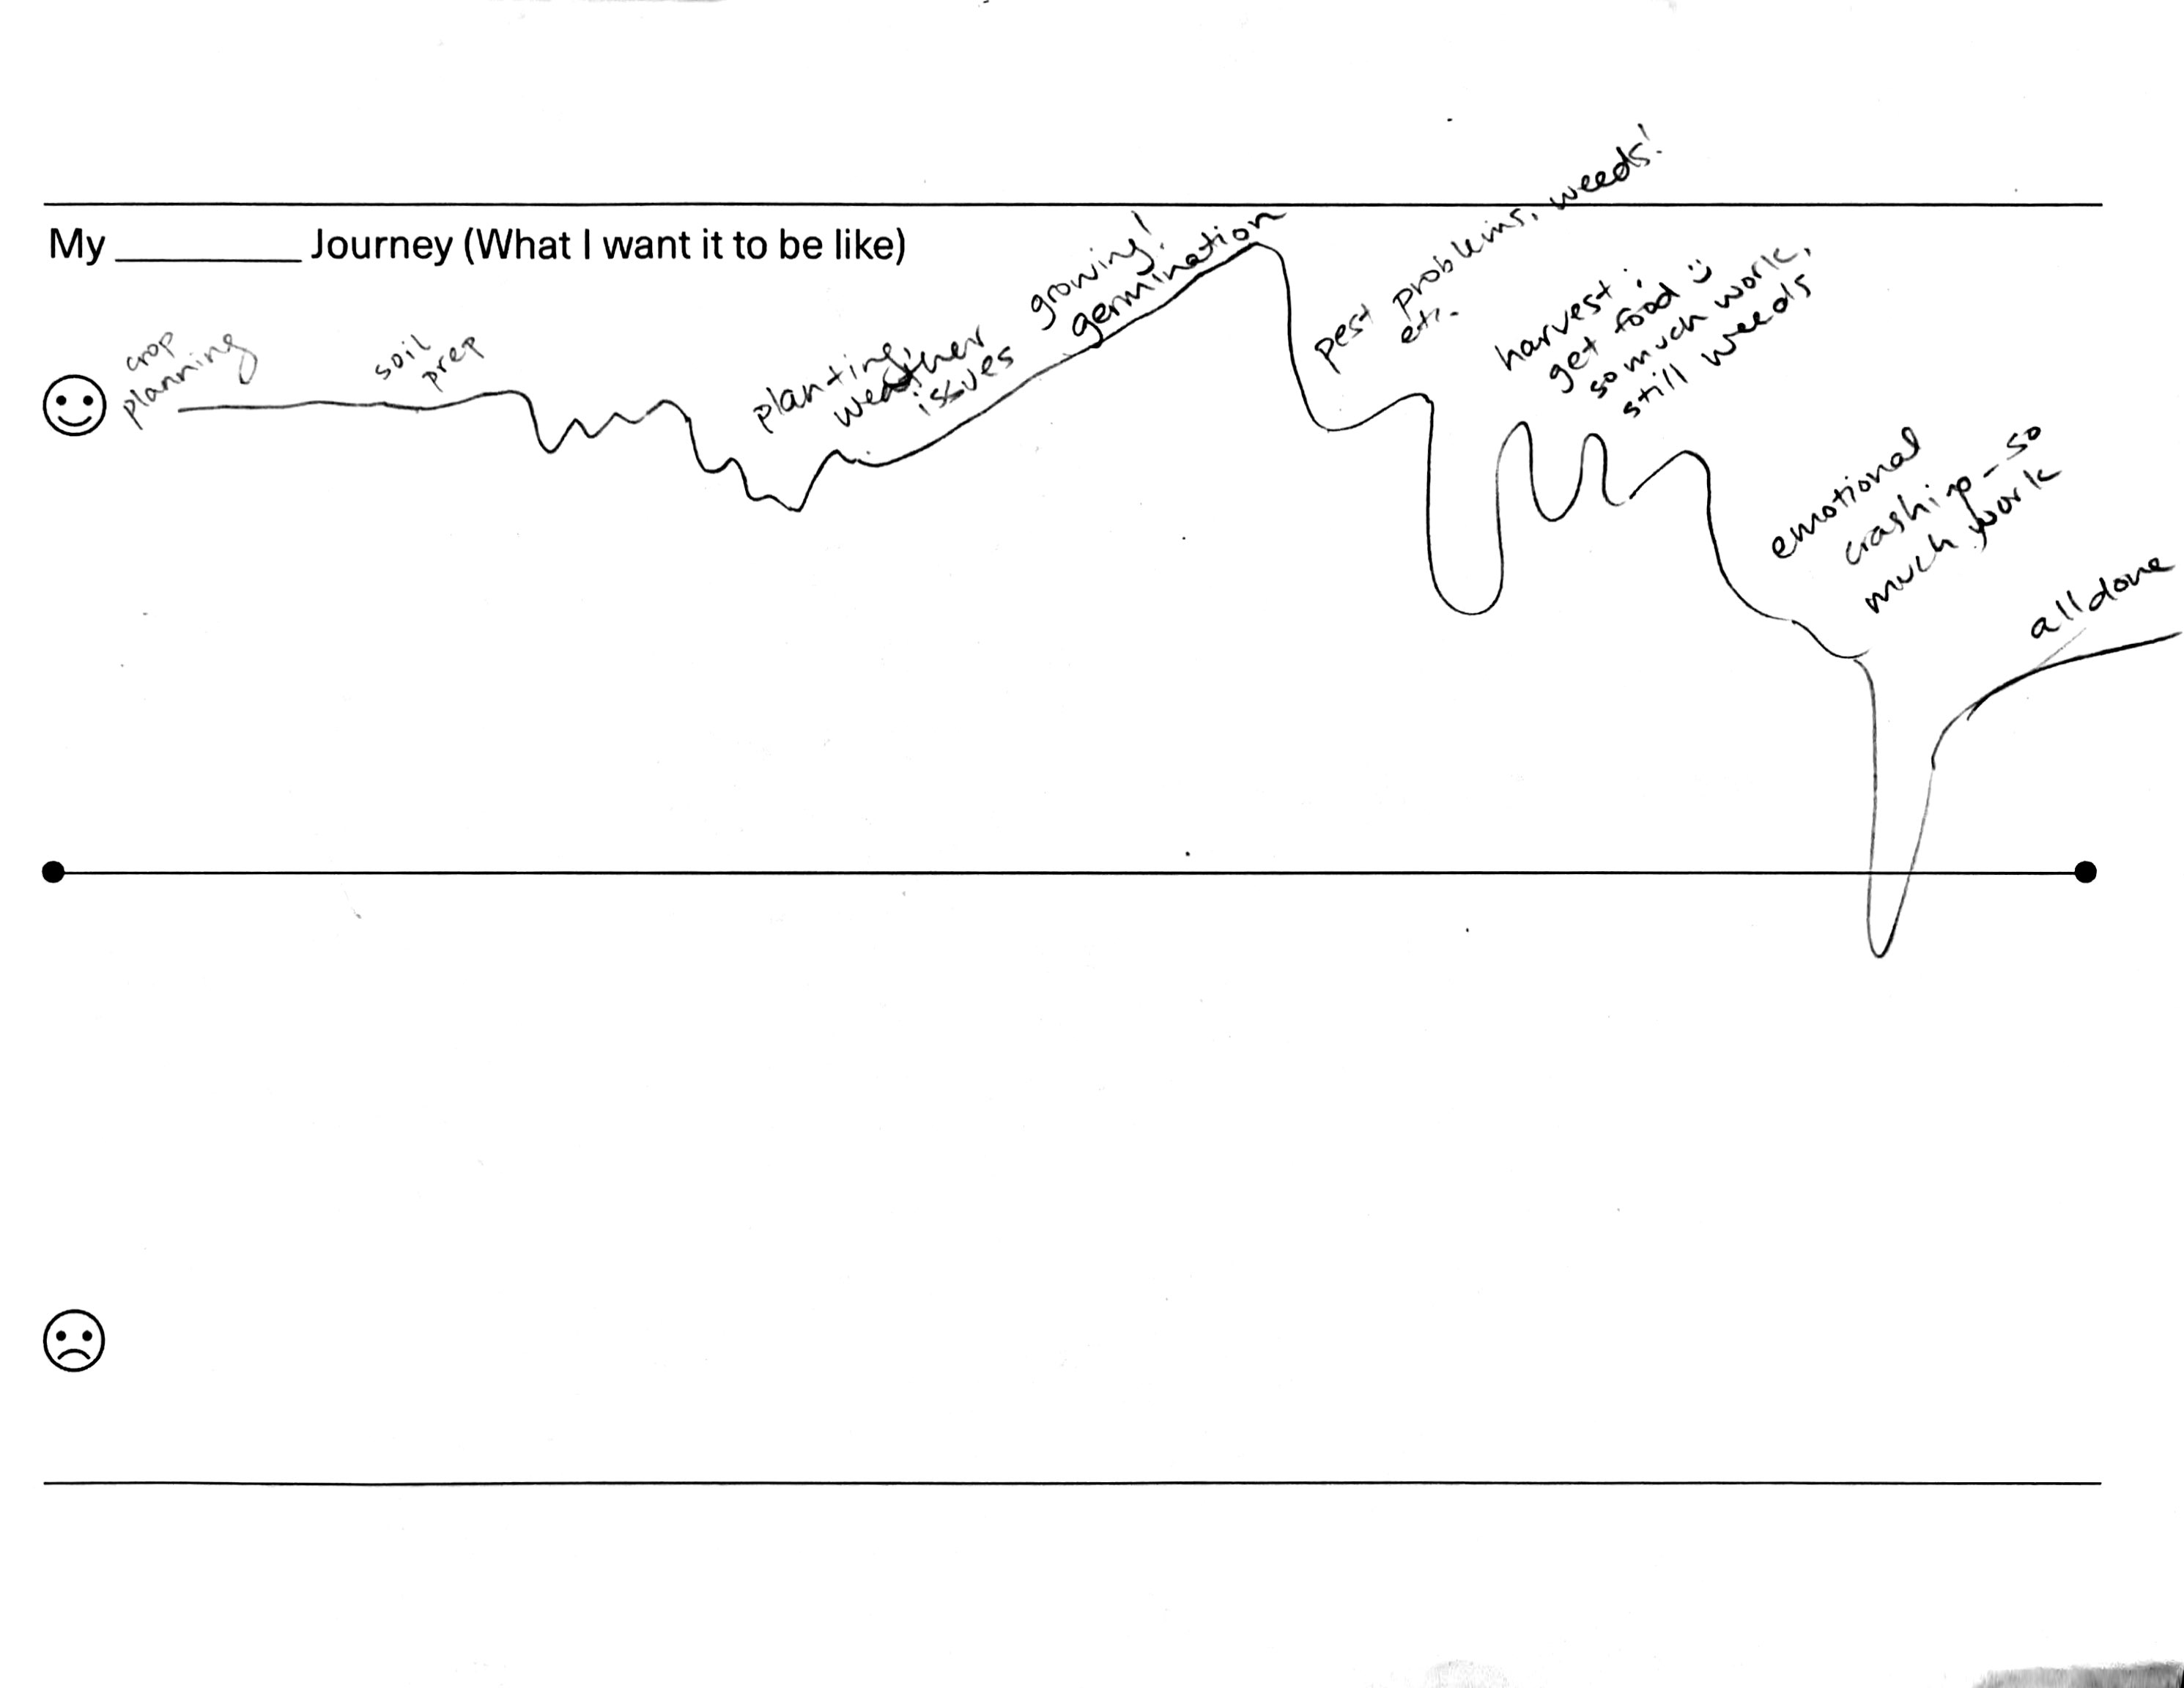 My _________ Journey (What I want it to be like)
crop
planning
soil
prep
planting,
weather
issues
growing!
germination
pest problems, weeds!
etc.
harvest!
get food :)
so much work,
still weeds
emotional
crashing - so
much work
all done